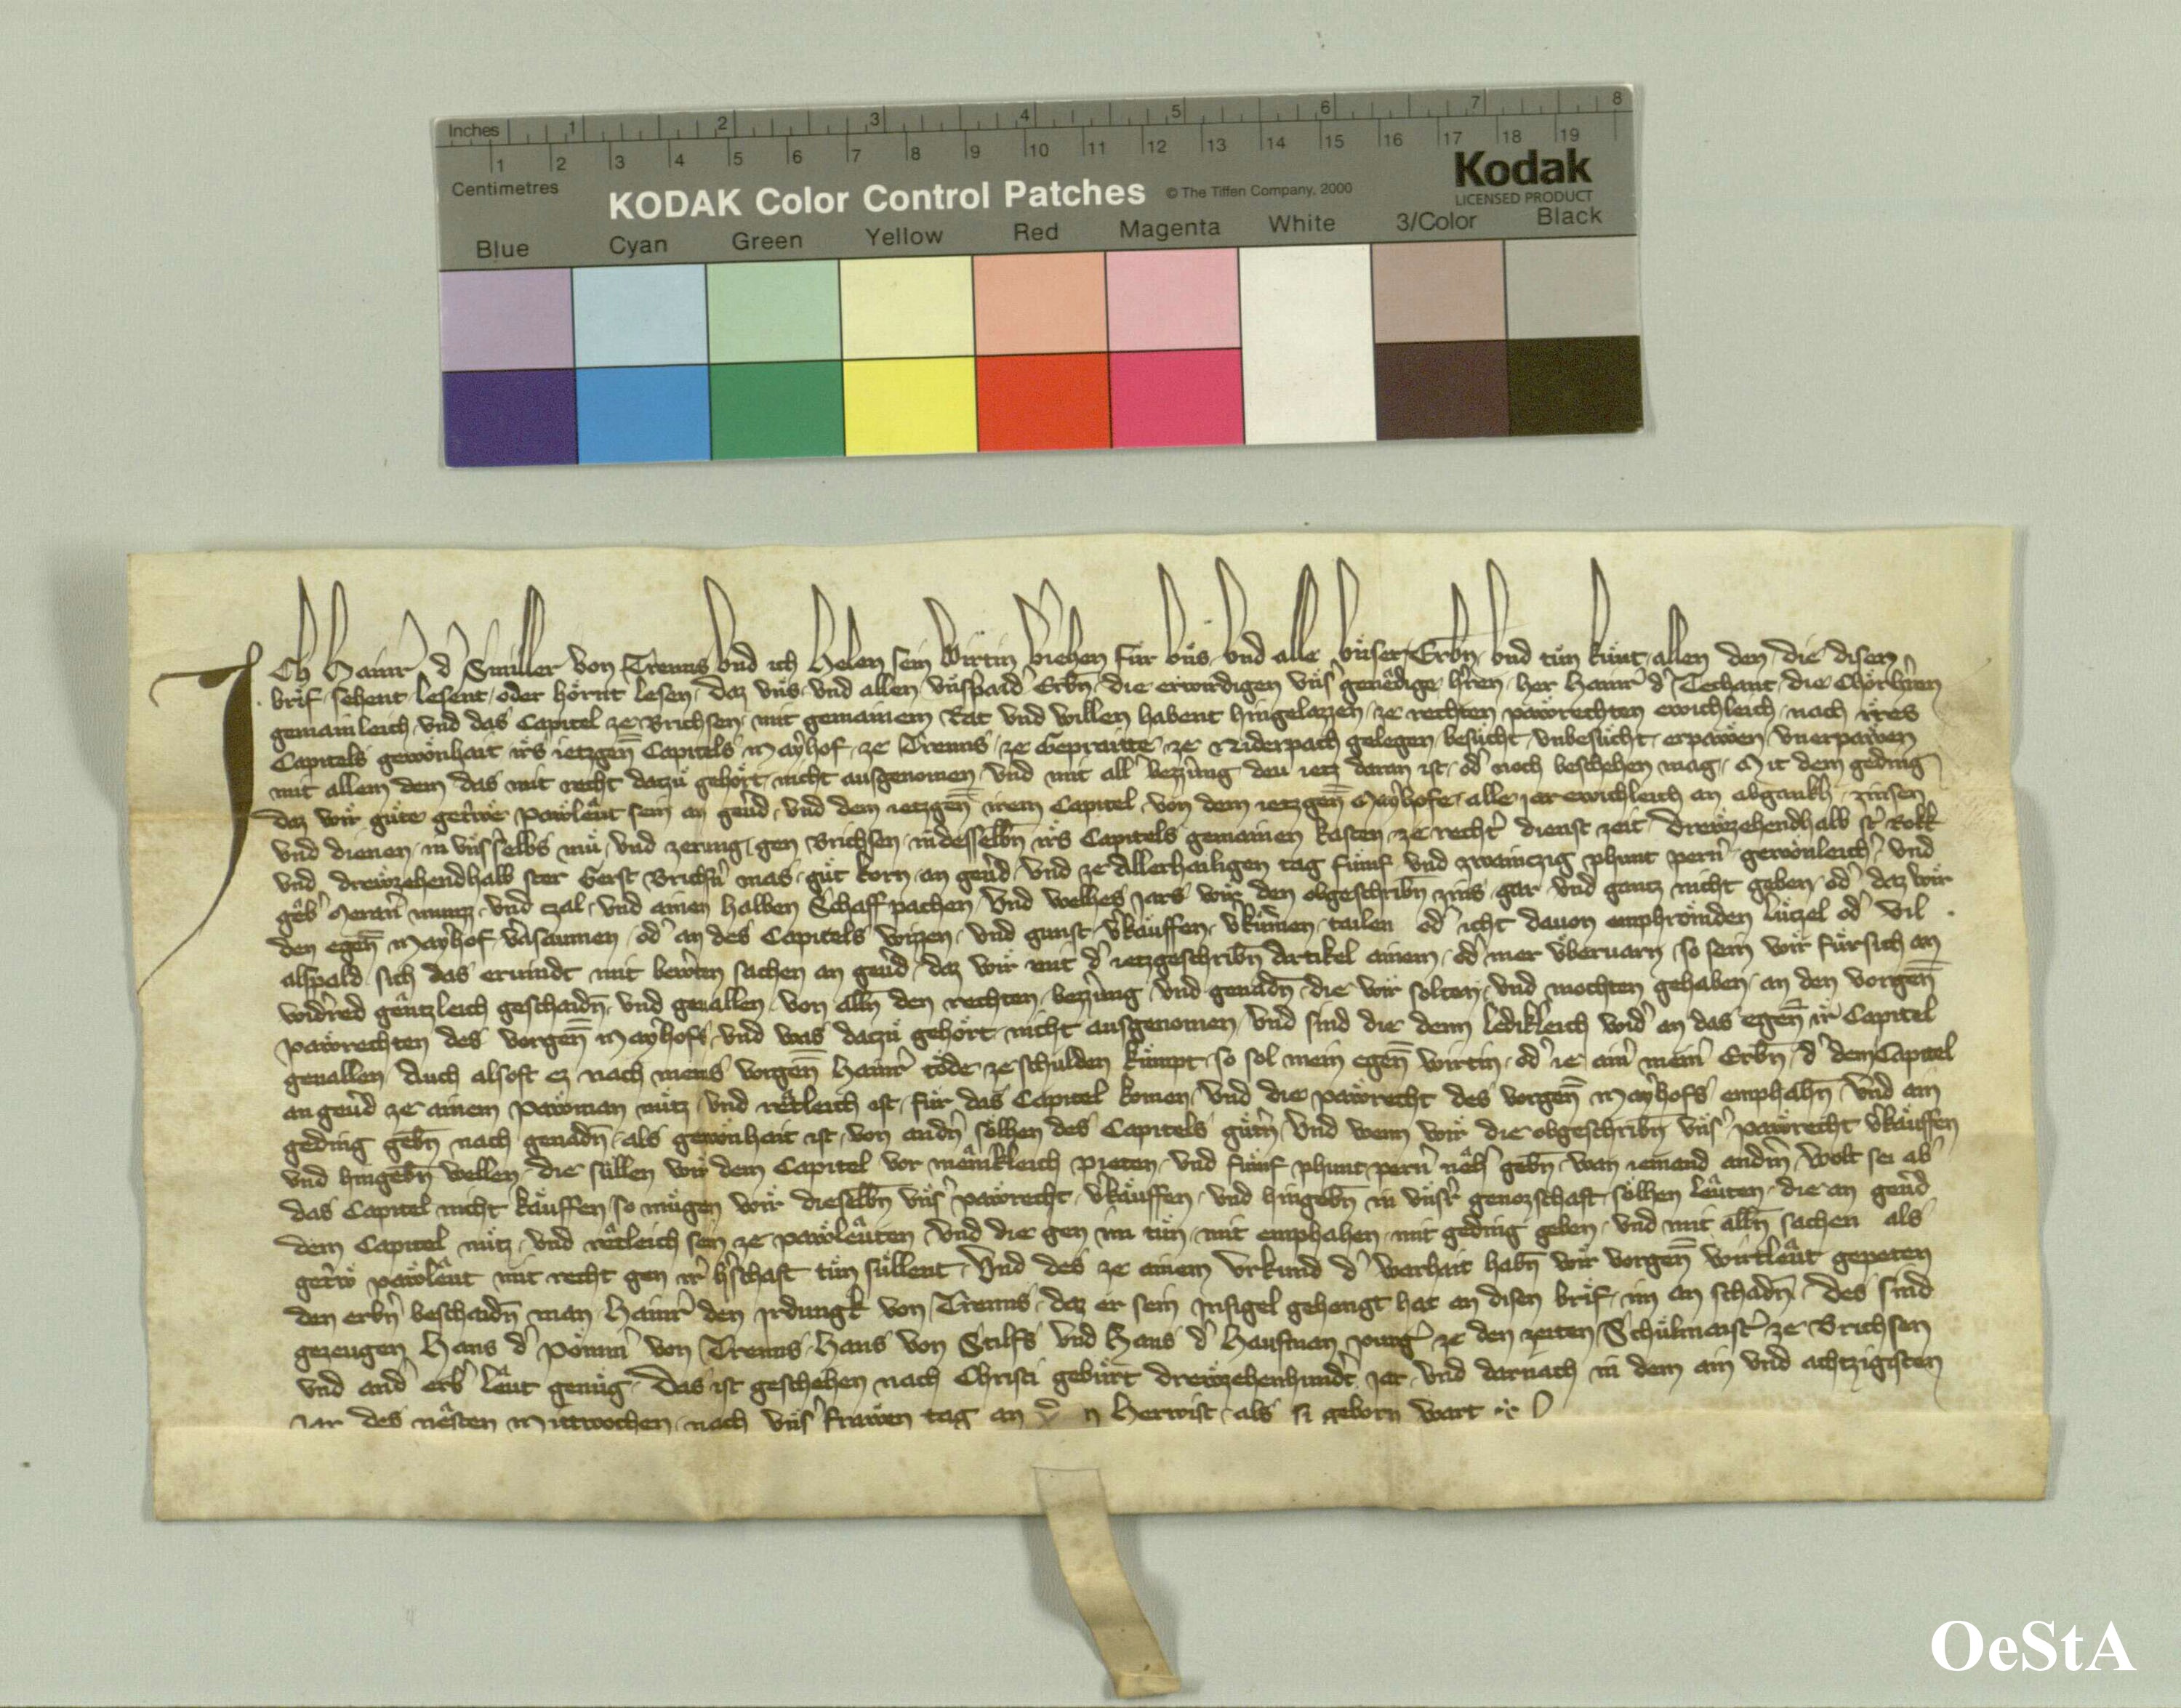 Inches 1 2 3 4 5 6 7 8
1 2 3 4 5 6 7 8 9 10 11 12 13 14 15 16 17 18 19
Centimetres
KODAK Color Control Patches © The Tiffen Company, 2000 Kodak
LICENSED PRODUCT
Blue Cyan Green Yellow Red Magenta White 3/Color Black
Ich Hainr̄ d' Smiller von Trenns vnd ich Helen sein Wirtin v'iehen für vns vnd alle vnser Erbn̄ vnd tün kunt allen den die disen
brif sehent lesent oder hörnt lesen daz vns vnd allen vnsʼ paid' Erbn̄ die erwirdigen vnsʼ genedige hʼren her Hainrʼ dʼ Techant die Chorhʼren
gemainleich vnd das Capitel ze Brichsen mit gemainem Rat vnd willen habent hingelazzen ze rechten pawrechten ewichleich nach ires
Capitels gewonhait irs ietzgen̄ Capitels Mayhof ze Trenns ze Gepraitte ze Niderpach gelegen besucht vnbesucht erpawen vnerpawen
mit allem dem das mit recht datzü gehört nicht ausgenomen vnd mit allʼ bezzʼung deu ietz daran ist odʼ noch beschehen mag Mit dem geding
daz wir güte getʼwe pawlewt sein an geuʼd vnd dem ietzgen̄ irem Capitel von dem ietzgen̄ Mayhofe alle iar ewichleich an abgankh zinsen
vnd dienen in vnsʼ selbs mü vnd zerung gen Brichsen in desselbn̄ irs Capitels gemainen kasten ze rechtʼ dienst zeit drewzehendhalb stʼ Rokk
vnd drewzehendhalb ster Gerst Brichsnʼ mas güt korn an geuʼd vnd ze Allerhailigen tag fünf vnd zwainczig phunt pernʼ gewonleichʼ vnd
gebʼ Meranʼ munzz vnd czal vnd ainen halben Schaff pachen Vnd welhes Jars wir den obgeschribn̄ zins gar vnd gantz nicht geben odʼ daz wir
den egen̄ Mayhof vʼsaumen odʼ an des Capitels wizzen vnd gunst vʼkauffen vʼkumʼen tailen odʼ icht dauon emphrömden lützel odʼ vil
alspald sich das eruindt mit bewʼten sachen an geuʼd daz wir mit dʼ ietzgeschribn̄ Artikel ainem odʼ mer überuarn so sein wir fürsich an
widʼred gentzleich geschaidn̄ vnd geuallen von alln̄ den rechten bezzʼung vnd genadn̄ die wir solten vnd mochten gehaben an den vorgen̄
pawrechten des vorgen̄ Mayhofs vnd was datzü gehört nicht ausgenomen vnd sind die denn ledikleich widʼ an das egen̄ ir Capitel
geuallen Auch alsoft ez nach meins vorgen̄ Hainrʼ tode ze schulden kümpt so sol mein egen̄ wirtin odʼ ie ainʼ meinʼ Erbn̄ dʼ dem Capitel
an geuʼd ze ainem pawman nütz vnd retleich ist für das Capitel komen vnd die pawrecht des vorgen̄ Mayhofs emphahn̄ vnd ain
geding gebn̄ nach genadn̄ als gewonhait ist von andʼn solhen des Capitels gütʼn Vnd wenn wir die obgeschribn̄ vnsʼ pawrecht vʼkauffen
vnd hingebn̄ wellen die süllen wir dem Capitel vor menikleich pieten vnd fünf phunt pernʼ nehʼ gebn̄ wan iemand andʼm wolt sei abʼ
das Capitel nicht kauffen so mügen wir dieselbn̄ vnsʼ pawrecht vʼkauffen vnd hingebn̄ in vnsrʼ genozschaft solhen leuten die an geuʼd
dem Capitel nütz vnd retleich sein ze pawleuten vnd die gen im tün mit emphahen mit geding geben vnd mit alln̄ sachen als
getʼw pawleut mit recht gen irʼ hʼschaft tün süllent Vnd des ze ainem vrkund dʼ warhait habn̄ wir vorgen̄ wirtleut gepeten
den erbʼn beschaidn̄ man Hainrʼ den Jrdungk von Trenns daz er sein Insigel gehengt hat an disen brif im an schadn̄ des sind
gezeugen Hans dʼ Pönnʼ von Trenns Hans von Stilfs vnd Hans dʼ Haufman purgʼ ze den zeiten Schulmaistʼ ze Brichsen
vnd andʼ erbʼ leut genüg Das ist geschehen nach Christi gebürt drewzehenhundʼt Jar vnd darnach in dem ain vnd achtzigisten
Jar des nesten Mittwochen nach vnsʼ frawen tag an herwist als si geborn wart
OeStA